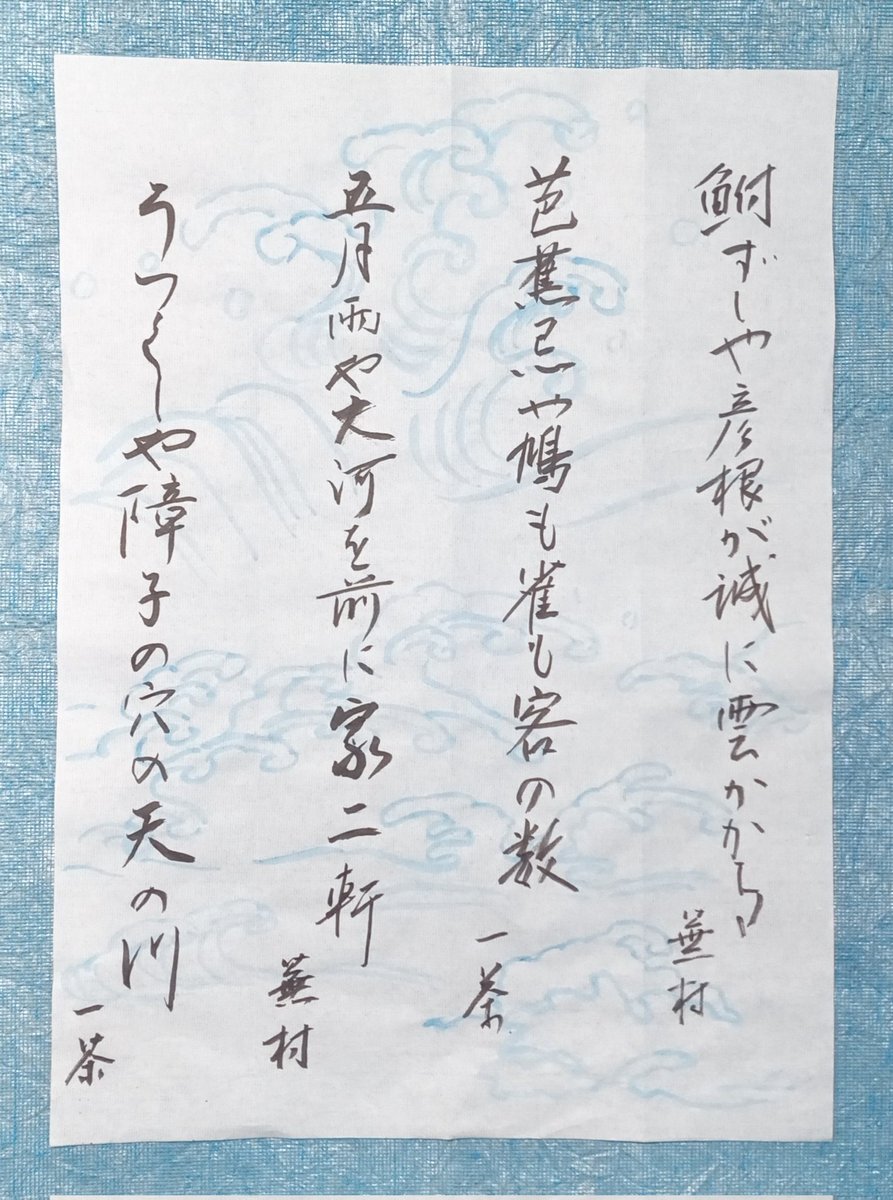 鮒ずしや彦根が城に雲かかる
蕪村
芭蕉忌や鳩も雀も客の数
一茶
五月雨や大河を前に家二軒
蕪村
うつくしや障子の穴の天の川
一茶